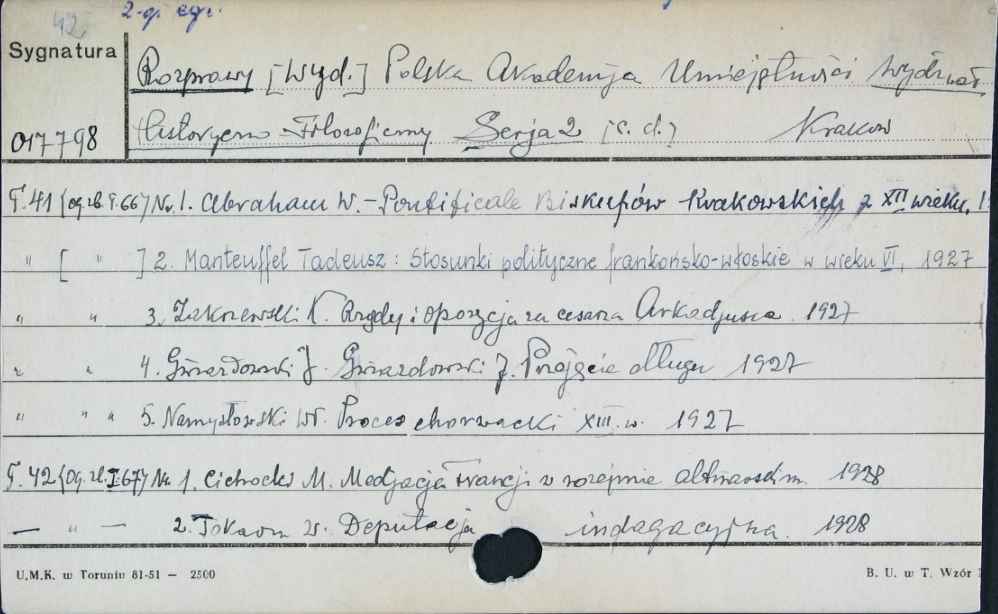 42. 2-gi egz.
Sygnatura
Rozprawy [Wyd.] Polska Akademja Umiejętności Wydział
017798 Historyczno-Filozoficzny Serja 2 [c. d.] Kraków
T. 41 (og. zb. T. 66) Nr. 1. Abraham W. - Pontificale Biskupów Krakowskich z XII wieku.
" [ " ] 2. Manteuffel Tadeusz: Stosunki polityczne frankońsko-włoskie w wieku VI, 1927
" " 3. Zakrzewski K. Rządy i opozycja za cesarza Arkadjusza. 1927
" " 4. Gwiazdowski J. Gwiazdowski J. Pojęcie długu 1927
" " " 5. Namysłowski Wł. Proces chorwacki XIII. w. 1927
T. 42 (og. zb. T. 67) Nr. 1. Cichocki M. Medjacja Francji w rozejmie altmarskim. 1928
— " — 2. Tokarz W. Deputacja indagacyjna. 1928
U.M.K. w Toruniu 81-51 — 2500
B. U. w T. Wzór 1